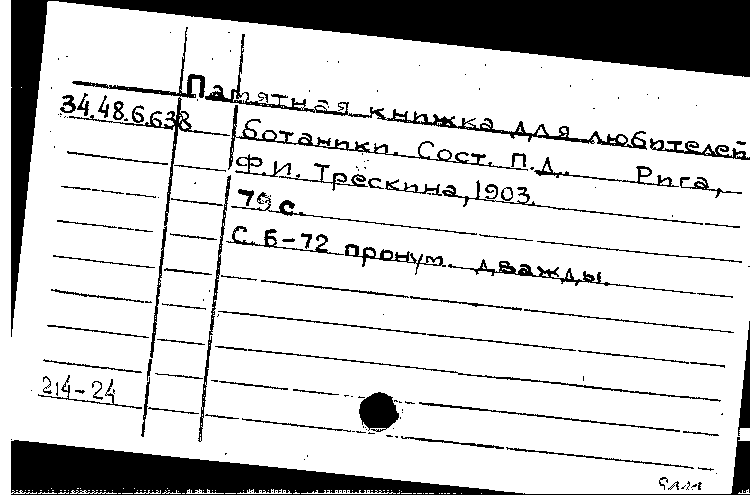 Памятная книжка для любителей
34.48.6.638
ботаники. Сост. П.Д. Рига,
Ф.И. Трескина, 1903.
79 с.
С. Б-72 пронум. дважды.
214-24